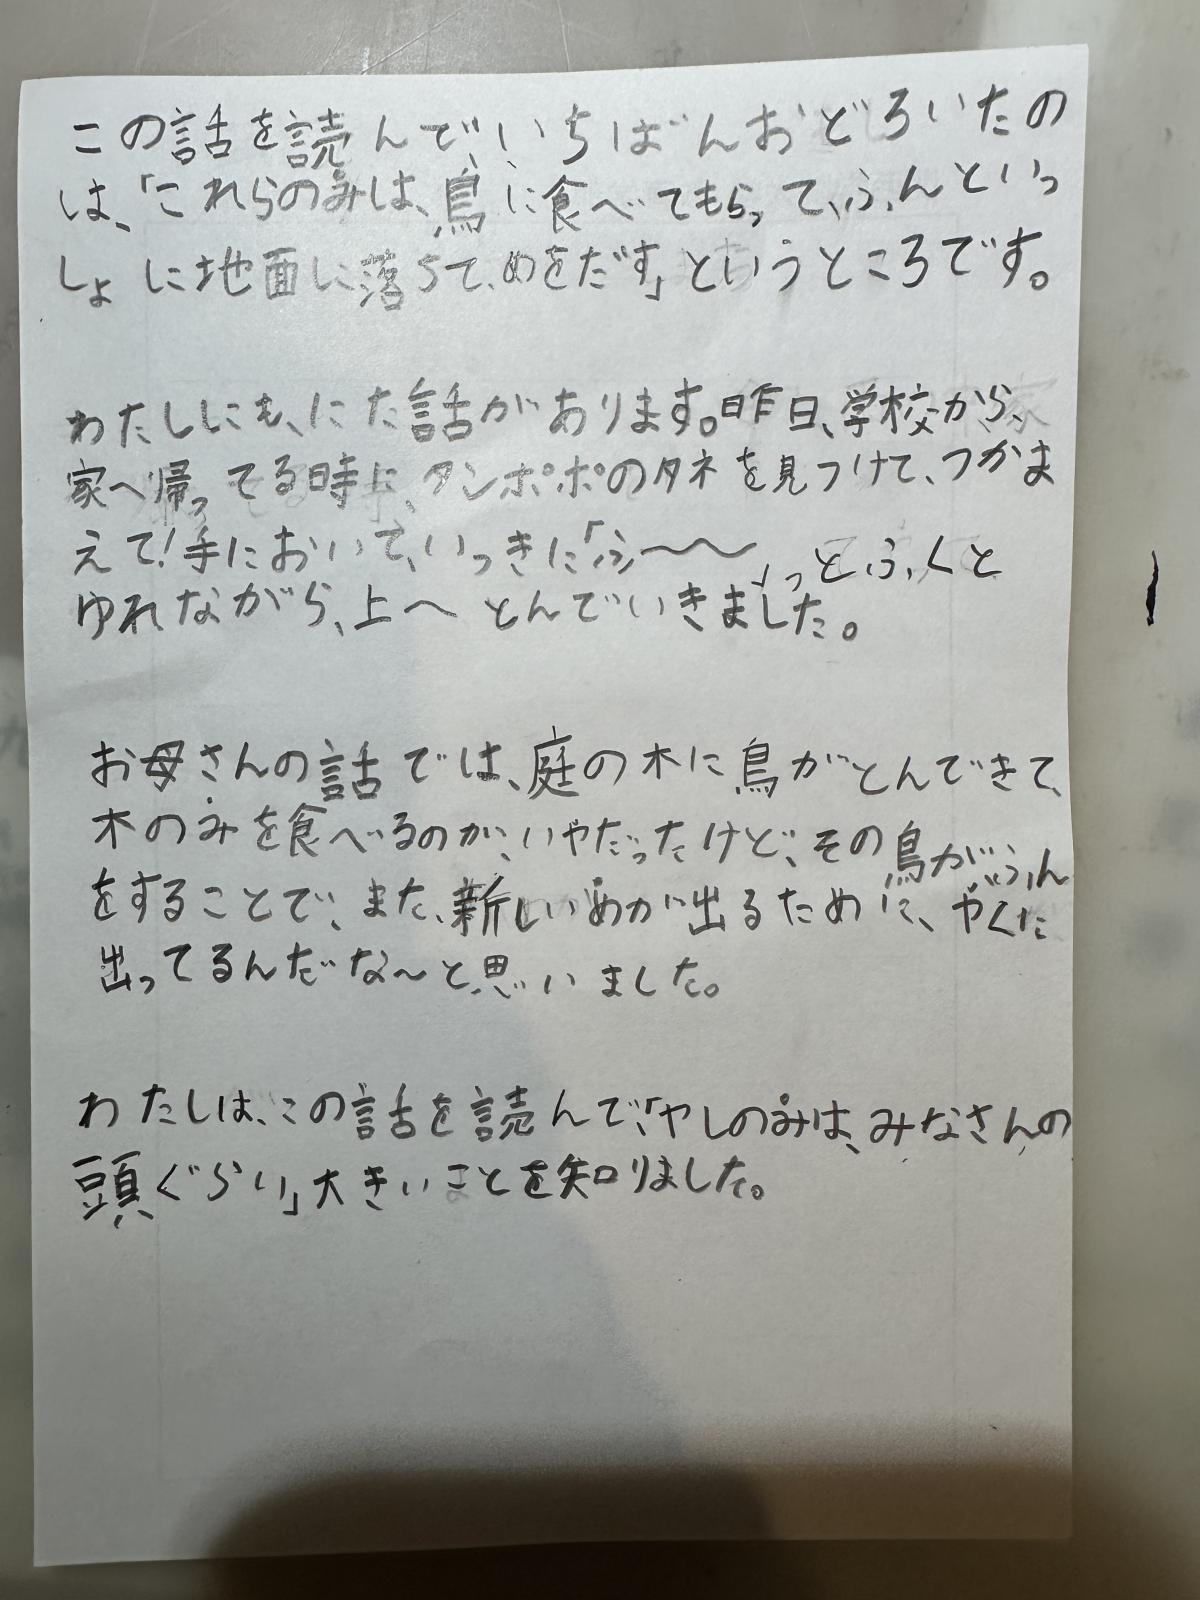 この話を読んで、いちばんおどろいたの
は、「これらのみは、鳥に食べてもらって、ふんといっ
しょに地面に落ちて、めをだす」というところです。
わたしにも、にた話があります。昨日、学校から、
家へ帰ってる時に、タンポポのタネを見つけて、つかま
えて！手において、いっきに「ふ〜〜」っとふくと
ゆれながら、上へとんでいきました。
お母さんの話では、庭の木に鳥がとんできて、
木のみを食べるのが、いやだったけど、その鳥が、ふん
をすることで、また、新しいめが出るために、やくた
出ってるんだな〜と思いました。
わたしは、この話を読んで、「ヤしのみは、みなさんの
頭ぐらい」大きいことを知りました。